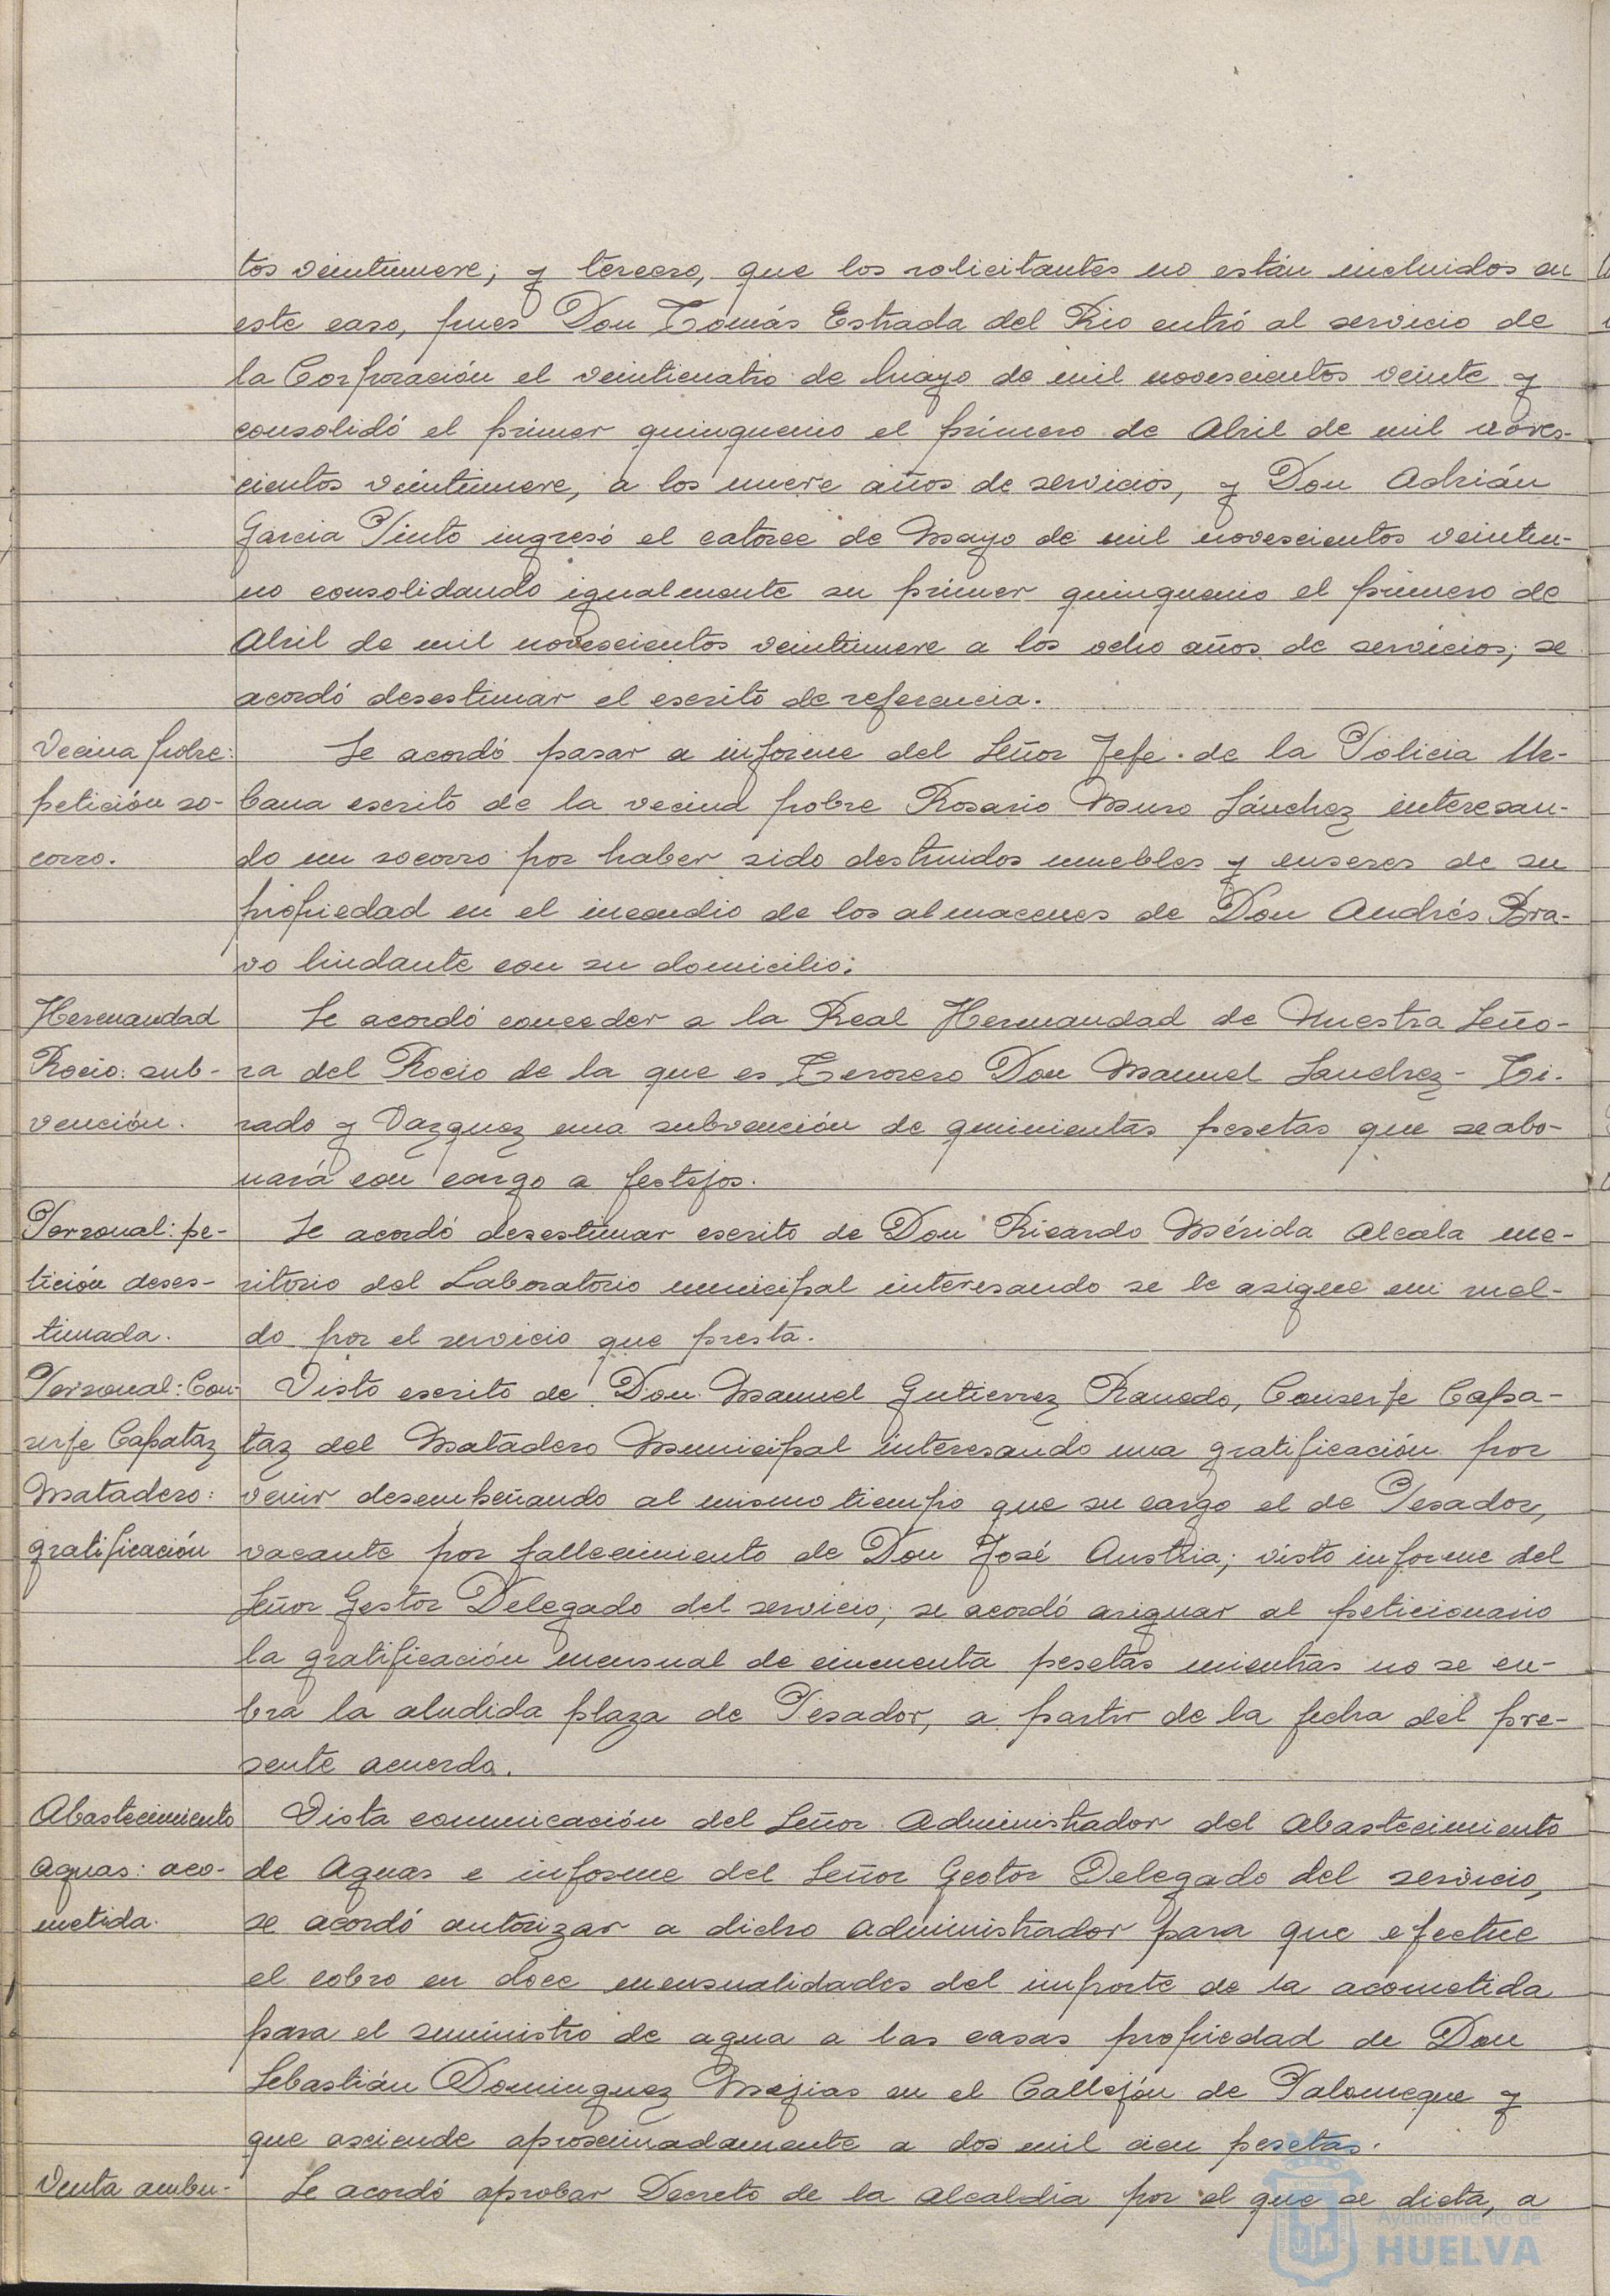 tos veintinueve; y tercero, que los solicitantes no están incluidos en
este caso, pues Don Tomás Estrada del Rio entró al servicio de
la Corporación el veinticuatro de Mayo de mil novescientos veinte y
consolidó el primer quinquenio el primero de Abril de mil noves-
cientos veintinueve, a los nueve años de servicios, y Don Adrián
Garcia Pinto ingresó el catorce de Mayo de mil novescientos veintiu-
no consolidando igualmente su primer quinquenio el primero de
Abril de mil novescientos veintinueve a los ocho años de servicios; se
acordó desestimar el escrito de referencia.
Vecina pobre:
petición so-
corro.
Se acordó pasar a informe del Señor Jefe de la Policia Ur-
bana escrito de la vecina pobre Rosario Muro Sánchez interesan-
do un socorro por haber sido destruidos muebles y enseres de su
propiedad en el incendio de los almacenes de Don Andrés Bra-
vo lindante con su domicilio.
Hermandad
Rocio: sub-
vención.
Se acordó conceder a la Real Hermandad de Nuestra Seño-
ra del Rocio de la que es Tesorero Don Manuel Sanchez-Ti-
rado y Vazquez una subvención de quinientas pesetas que se abo-
nará con cargo a festejos.
Personal: pe-
tición deses-
timada.
Se acordó desestimar escrito de Don Ricardo Mérida Alcala me-
ritorio del Laboratorio municipal interesando se le asigne un suel-
do por el servicio que presta.
Personal: Con-
serje Capataz
Matadero:
gratificación
Visto escrito de Don Manuel Gutierrez Ranedo, Conserje Capa-
taz del Matadero Municipal interesando una gratificación por
venir desempeñando al mismo tiempo que su cargo el de Pesador,
vacante por fallecimiento de Don José Austria; visto informe del
Señor Gestor Delegado del servicio; se acordó asignar al peticionario
la gratificación mensual de cincuenta pesetas mientras no se cu-
bra la aludida plaza de Pesador, a partir de la fecha del pre-
sente acuerdo.
Abastecimiento
Aguas: aco-
metida.
Vista comunicación del Señor Administrador del Abastecimiento
de Aguas e informe del Señor Gestor Delegado del servicio,
se acordó autorizar a dicho Administrador para que efectue
el cobro en doce mensualidades del importe de la acometida
para el suministro de agua a las casas propiedad de Don
Sebastián Dominguez Mejias en el Callejón de Palomeque y
que asciende aproximadamente a dos mil cien pesetas.
Venta ambu-
Se acordó aprobar Decreto de la Alcaldía por el que se dicta, a
Ayuntamiento de
HUELVA